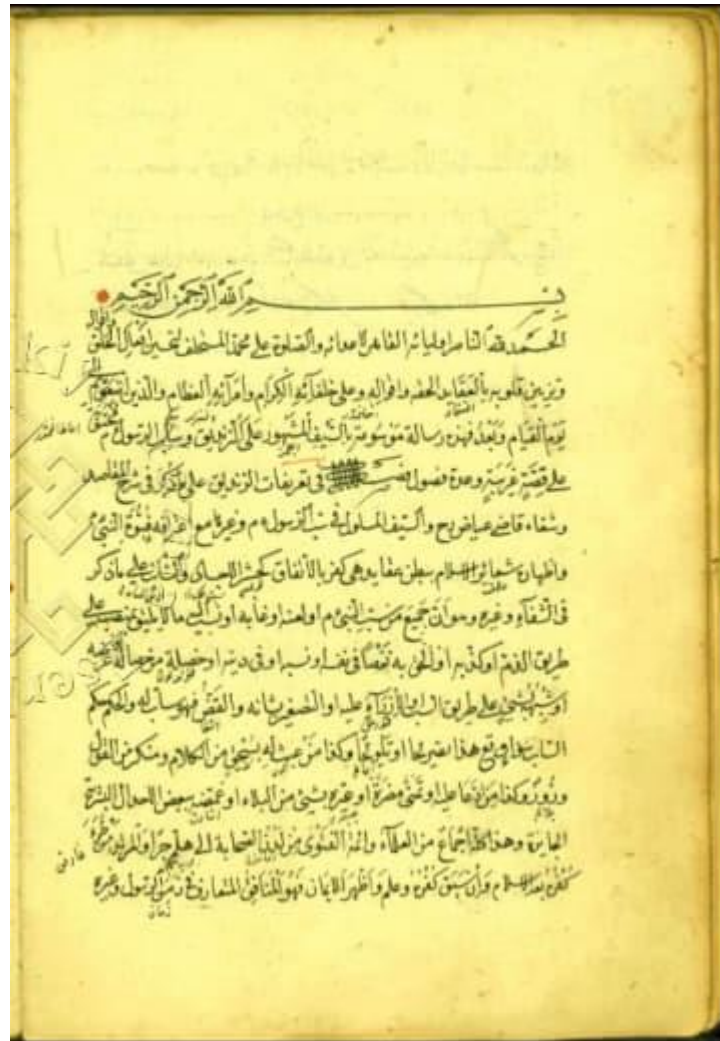 بسم الله الرحمن الرحيم
الحمد لله الناصر اوليائه القاهر لاعدائه والصلوة على محمد المستخلف لتحسين افعال الخلق واقوال
وتزيين قلوبهم بالعقايد الحقه واقواله وعلى خلفائه الكرام وامرائه العظام والذين اتبعوهم الى
يوم القيام وبعد فهذه رسالة موسومة بالسيف المشهور على الزنديق وساب الرسول م
على قصة غريبة وعدة فصول في تعريفات الزنديق على ما ذكر في شرح المقاصد
وشفاء قاضي عياض رح والسيف المسلول في سب الرسول م وغيرها مع اعترافه بنبوة النبي م
واظهاره شعائر الاسلام يبطن عقايد هي كفر بالاتفاق والساب على ما ذكر
في الشفاء وغيره وهو ان جميع من سب النبي م او لعنه او عابه او نسب اليه ما لا يليق بمنصبه على
طريق الذم او كذبه او الحق به نقصا في نفسه او نسبه او في دينه او خصلة من خصاله او عرضه
او شبهه بشيء على طريق السب او الازراء عليه او التصغير بشانه والنقص فهو ساب له والحكم حكم
الساب هذا تصريحا او تلويحا وكذا من عبث له بشيء من الكلام ومنكر من القول
وزور وكذا من دعا عليه او تمنى مضرة او غيره بشيء من البلاء او غمصه ببعض الاحوال البشرية
الجايزة وهذا كله اجماع من العلماء وائمة الفتوى من لدن الصحابة الى هلم جرا
كفره بعد الاسلام وان سبق كفره وعلم واظهر الايمان فهو المنافق المتعارف في زمن الرسول وغيره